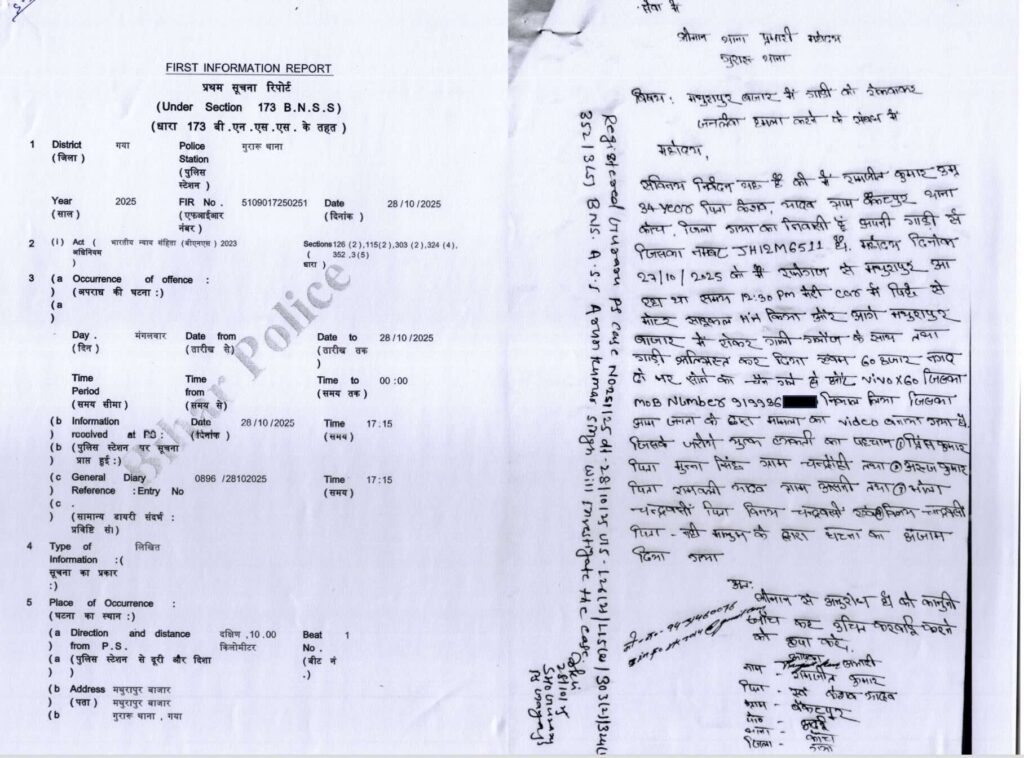 FIRST INFORMATION REPORT
प्रथम सूचना रिपोर्ट
(Under Section 173 B.N.S.S)
(धारा 173 बी.एन.एस.एस. के तहत )
1 District (जिला ) गया Police Station (पुलिस स्टेशन ) गुरारू थाना
Year (साल ) 2025 FIR No . (एफआईआर नंबर ) 5109017250251 Date (दिनांक ) 28/10/2025
2 (i) Act ( अधिनियम ) भारतीय न्याय संहिता (बीएनएस ) 2023 Sections ( धारा ) 126 (2) ,115(2) ,303 (2) ,324 (4) , 352 ,3(5)
3 (a Occurrence of offence :
) (अपराध की घटना :)
(a
)
Day . (दिन ) मंगलवार Date from (तारीख से) Date to (तारीख तक ) 28/10/2025
Time Period (समय सीमा ) Time from (समय से) Time to (समय तक ) 00 :00
(b Information received at PS : (पुलिस स्टेशन पर सूचना प्राप्त हुई :) Date (दिनांक ) 28/10/2025 Time (समय ) 17:15
(c General Diary Reference :Entry No . (सामान्य डायरी संदर्भ : प्रविष्टि सं) 0896 /28102025 Time (समय ) 17:15
4 Type of Information :( सूचना का प्रकार :) लिखित
5 Place of Occurrence :
(घटना का स्थान :)
(a Direction and distance from P.S. (पुलिस स्टेशन से दूरी और दिशा ) दक्षिण ,10.00 किलोमीटर Beat No . (बीट नं .) 1
(b Address (पता ) मथुरापुर बाजार
गुरारू थाना , गया
Bihar Police
सेवा में
श्रीमान थाना प्रभारी महोदय
गुरारू थाना
विषय : मथुरापुर बाजार में गाड़ी को रोकवाकर
जानलेवा हमला करने के संबंध में
महोदय,
सविनय निवेदन यह है की मैं रामजीत कुमार उम्र
34 year पिता केशव, यादव ग्राम बैकटपुर थाना
कोंच जिला गया का निवासी हूँ अपनी गाड़ी से
जिसका नम्बर JH12M6511 है। महोदय दिनांक
27/10/2025 को मैं से मथुरापुर आ
रहा था समय 12:30 Pm मेरी car में पिछे से
मोटर साइकल किया और आगे मथुरापुर
बाजार में रोकर गाली गलौज के साथ तथा
गाड़ी क्षतिग्रस्त कर दिया 60 हजार नगद
सोने का चैन और vivo X60 जिसका
MoB Number 919936 लिया जिसका
आम जनता के द्वारा मामला का video बनाया गया है
जिसके जरीये मुख्य का पहचान ① प्रिंस कुमार
पिता मुन्ना सिंह ग्राम तथा ② कुमार
पिता यादव ग्राम तथा ③
चन्द्रवंशी पिता चन्द्रवंशी चन्द्रवंशी
पिता - नही मालुम के द्वारा घटना का अंजाम
दिया गया
अतः
श्रीमान से अनुरोध है की कानुनी
जाँच कर उचित कारवाई करने
की कृपा करे,
नाम - रामजीत कुमार
पिता - केशव यादव
ग्राम - बैकटपुर
थाना - कोंच
जिला - गया
Registered Guraru PS Case No 251/25 dt-28/10/25 U/S-126(2)/115(2)/303(2)/324(4)
352/3(5) BNS. A.S.I Arvan Kumar Singh will investigate the case.